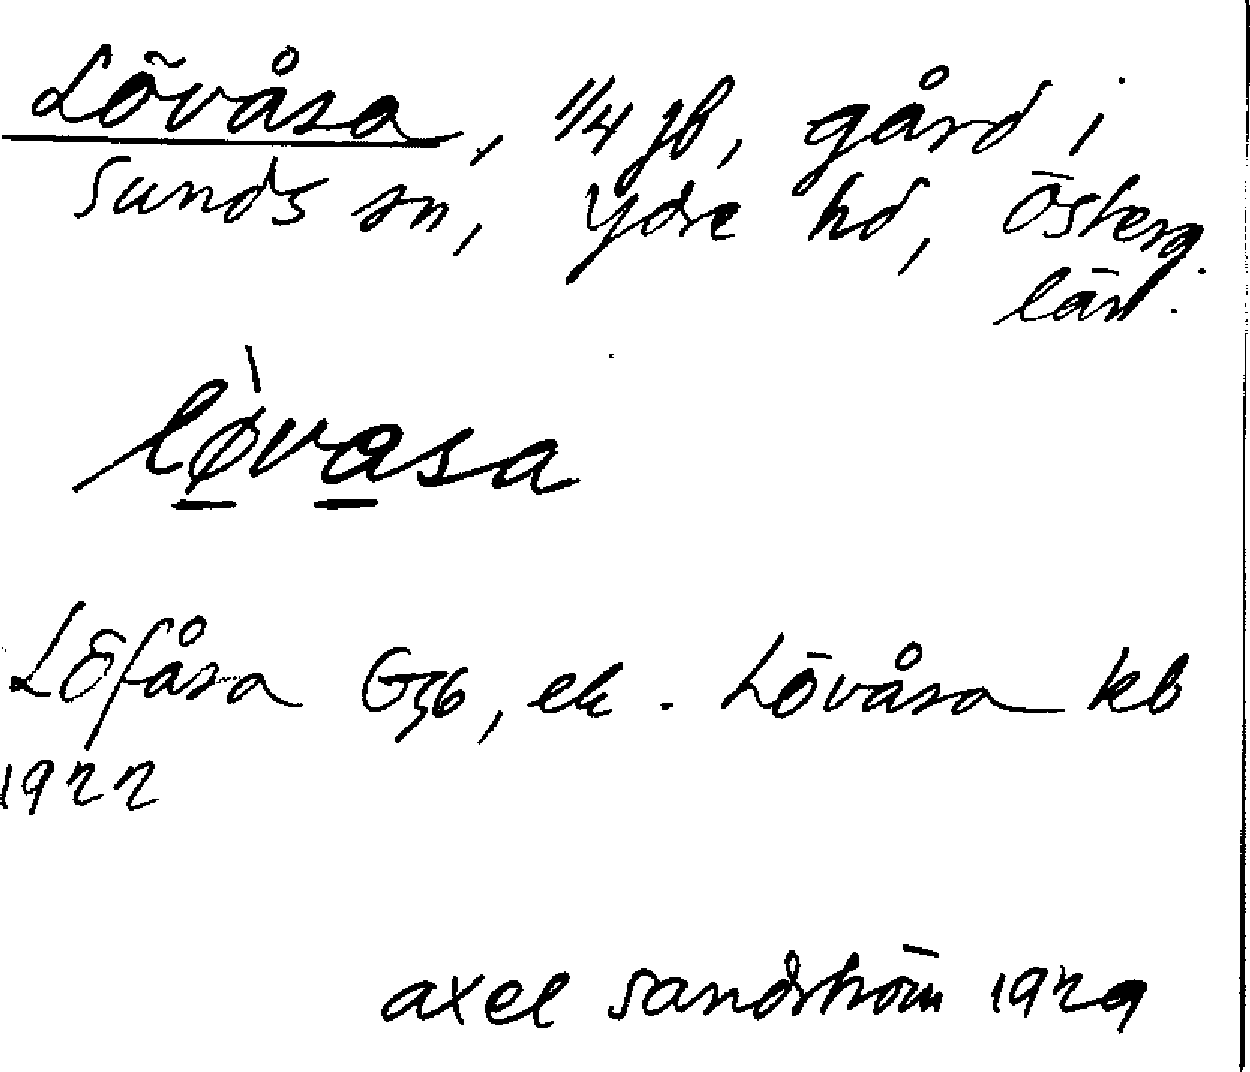 Lövåsa, 1/4 jb, gård i
Sunds sn, Ydre hd, Österg.
län.
lø̀vasa
Löfåsa Gzb, ek. Lövåsa kb
1922
axel sandström 1929